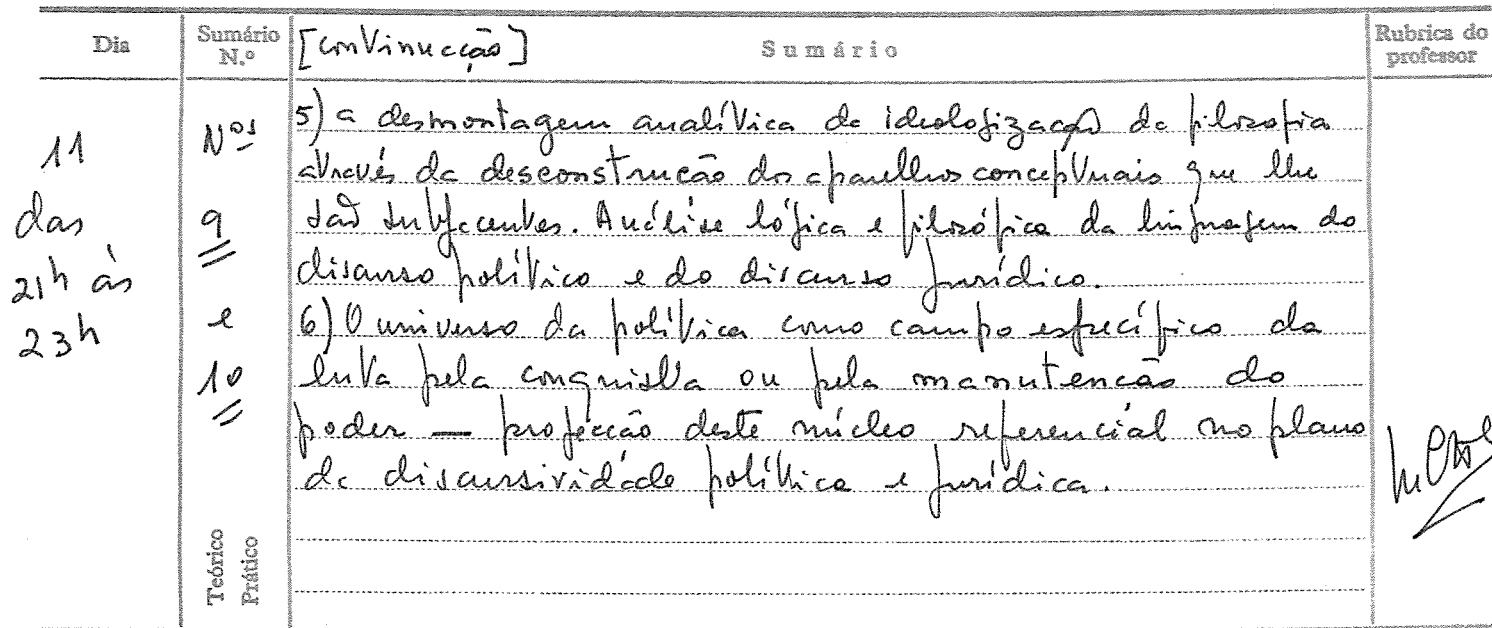 Dia
Sumário N.º
[Continuação]
Sumário
Rubrica do professor
11
das
21h às
23h
Nos
9
e
10
5) a desmontagem analítica da ideologização da filosofia
através da desconstrução dos aparelhos conceptuais que lhe
são subjacentes. Análise lógica e filosófica da linguagem do
discurso político e do discurso jurídico.
6) O universo da política como campo específico da
luta pela conquista ou pela manutenção do
poder — projecção deste núcleo referencial no plano
da discursividade política e jurídica.
Teórico
Prático